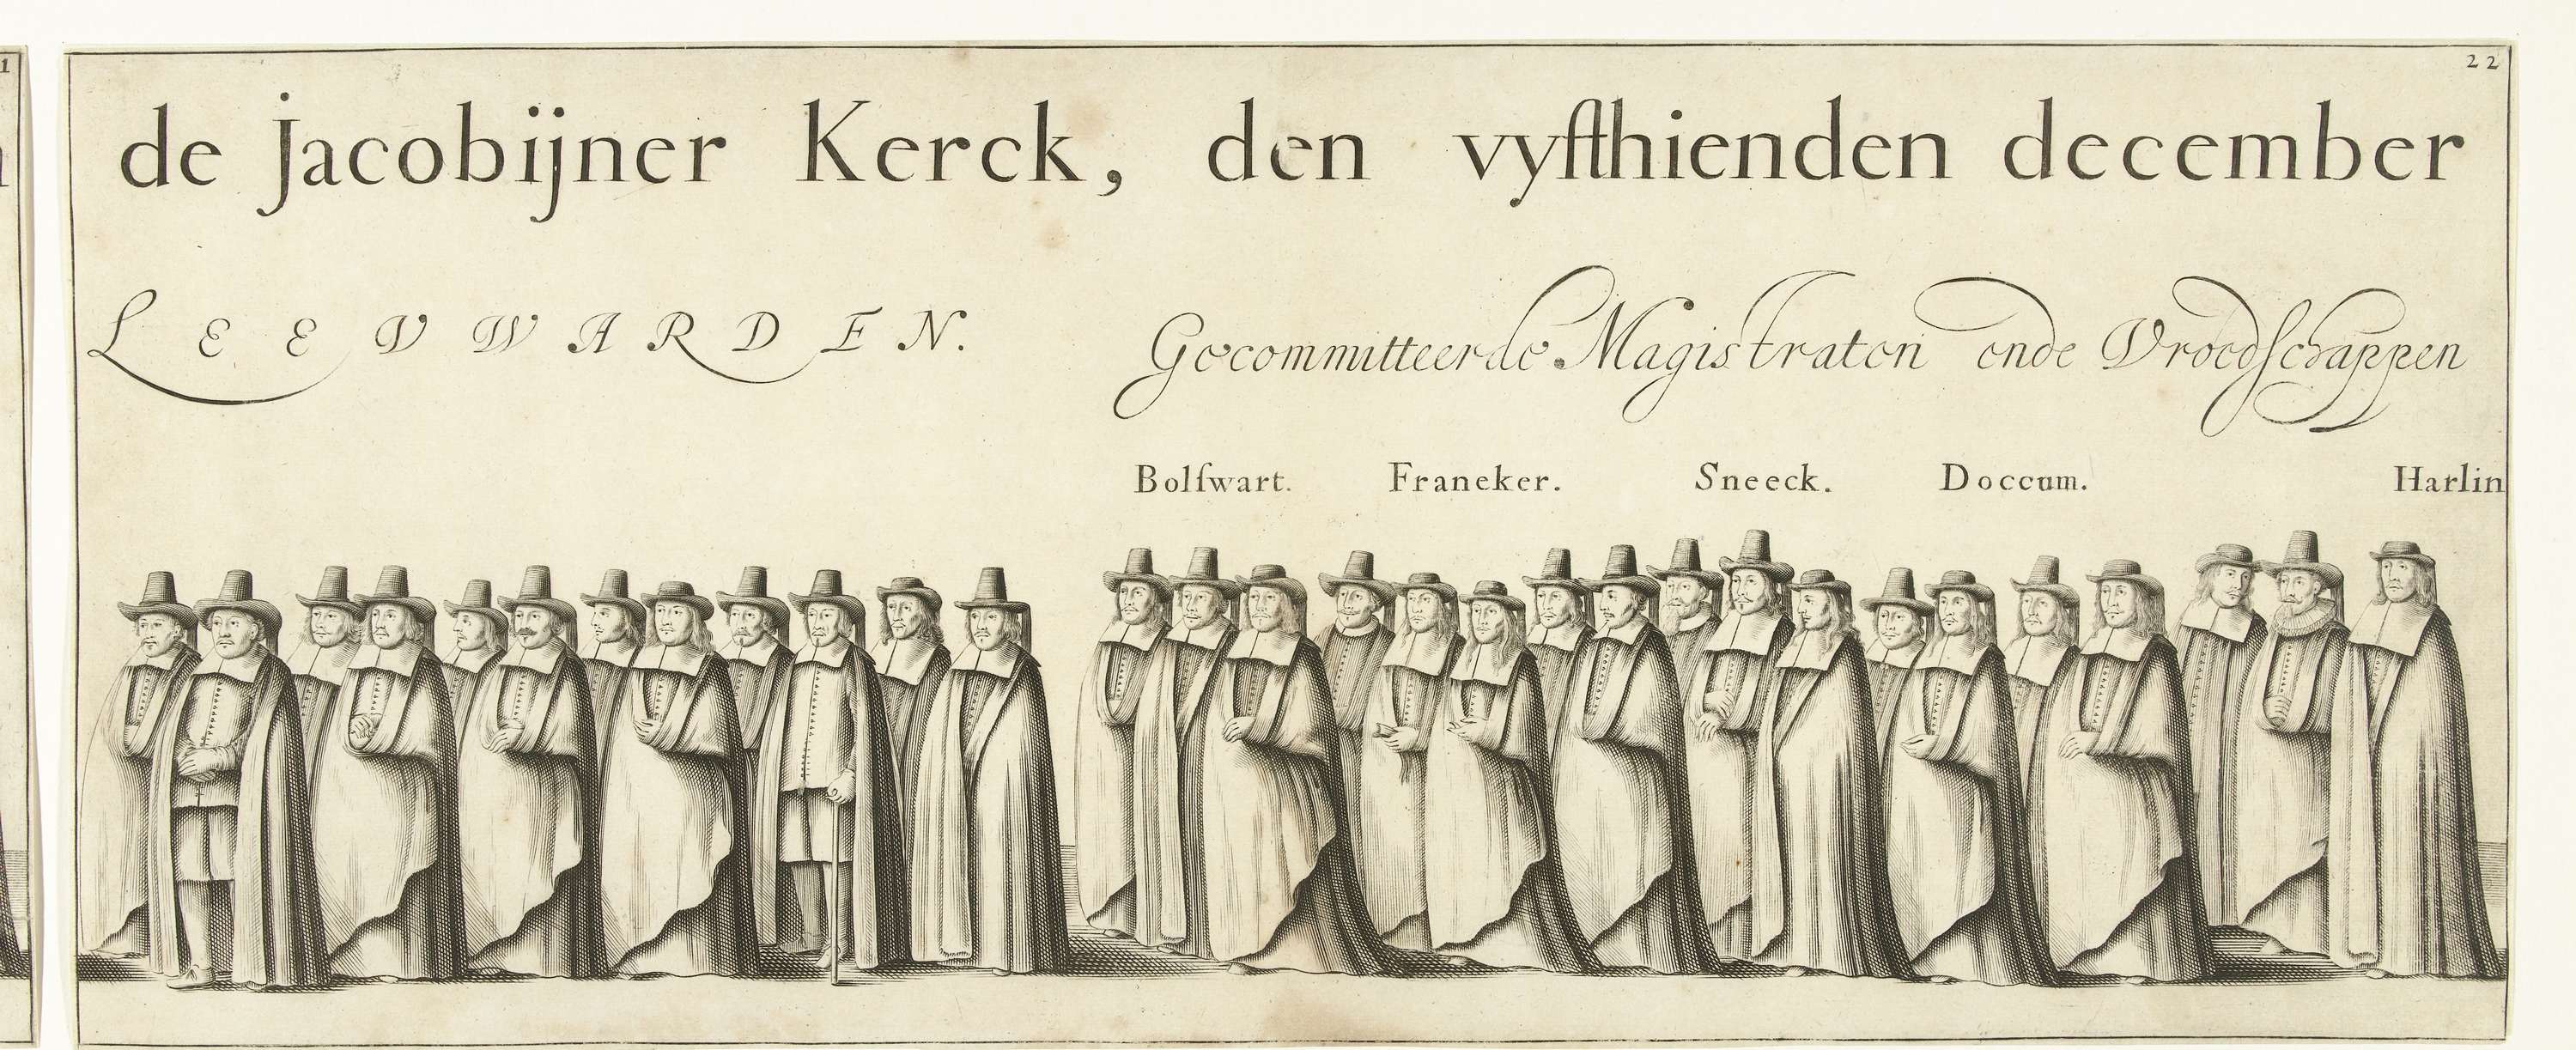 22
de Jacobijner Kerck, den vyfthienden december
LEEVWARDEN. Gecommitteerde Magistraten ende Vroedſchappen
Bolſwart. Franeker. Sneeck. Doccum. Harlin